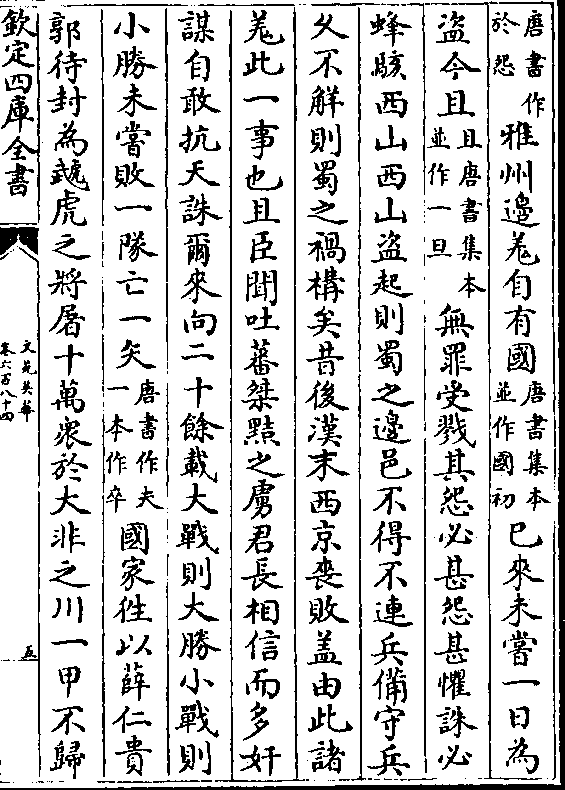 唐書作於怨雅州邉羌自有國唐書集本並作國初已來未嘗一日為
盗今且且唐書集本並作一旦無罪受戮其怨必甚怨甚懼誅必
蜂駭西山西山盗起則蜀之邊邑不得不連兵備守兵
久不解則蜀之禍構矣昔後漢末西京喪敗盖由此諸
羌此一事也且臣聞吐蕃桀黠之虜君長相信而多奸
謀自敢抗天誅爾來向二十餘載大戰則大勝小戰則
小勝未嘗敗一隊亡一矢唐書作夫一本作卒國家徃以薛仁貴
郭待封為虓虎之將屠十萬衆於大非之川一甲不歸
欽定四庫全書
文苑英華
卷六百八十四
五